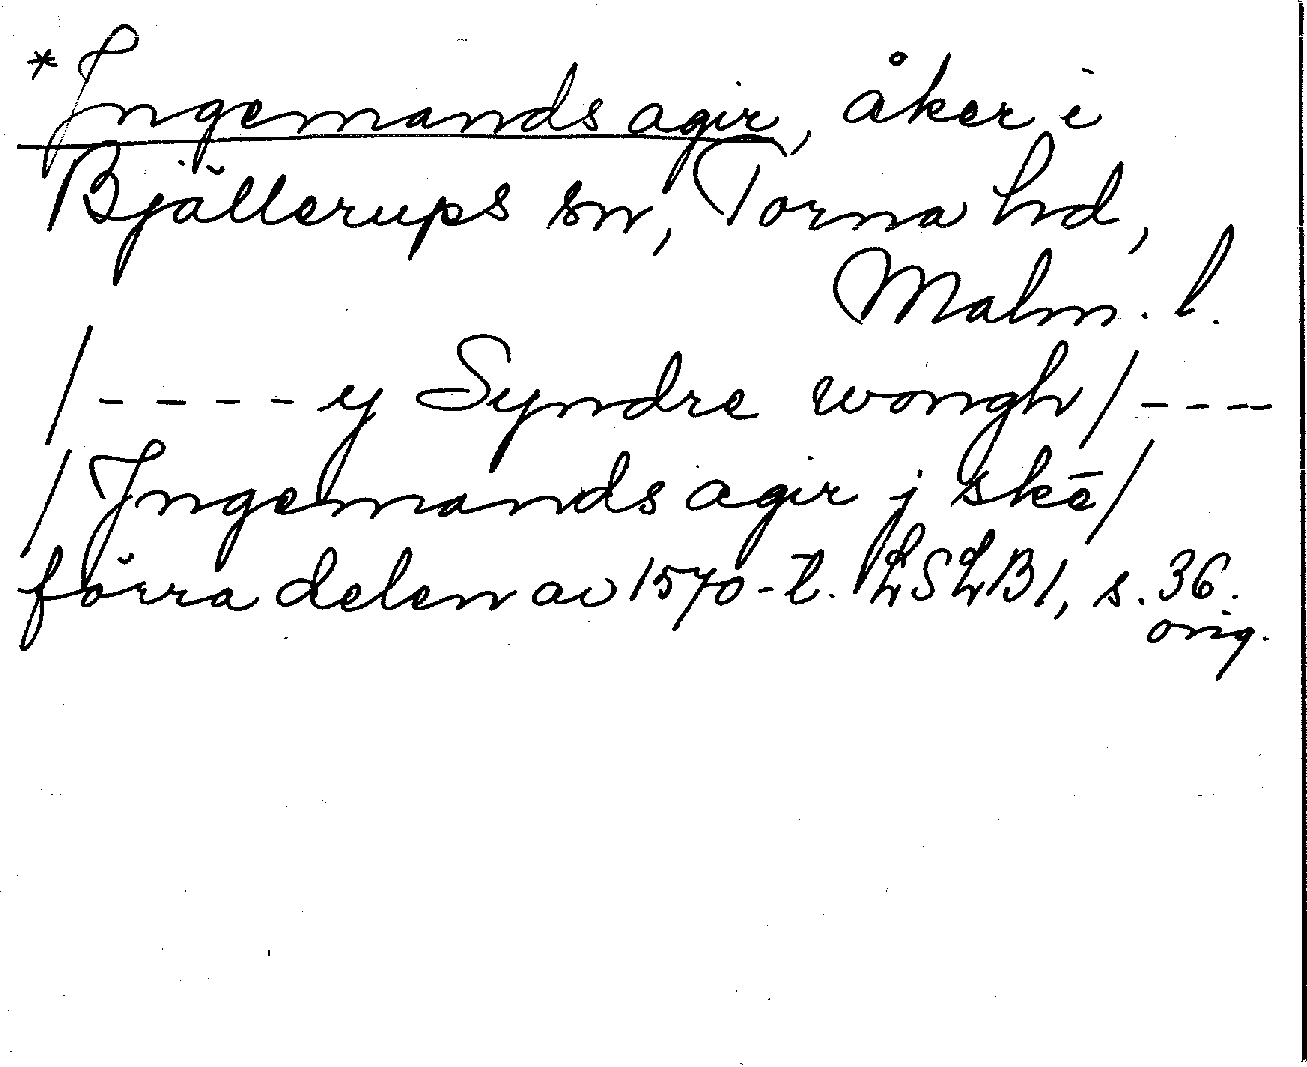 *Ingemands agir, åker i
Bjällerups sn, Torna hd,
Malm. l.
/----y Syndre wongh/---
/Ingemands agir j skē/
förra delen av 1570-t. LSLB1, s. 36.
orig.